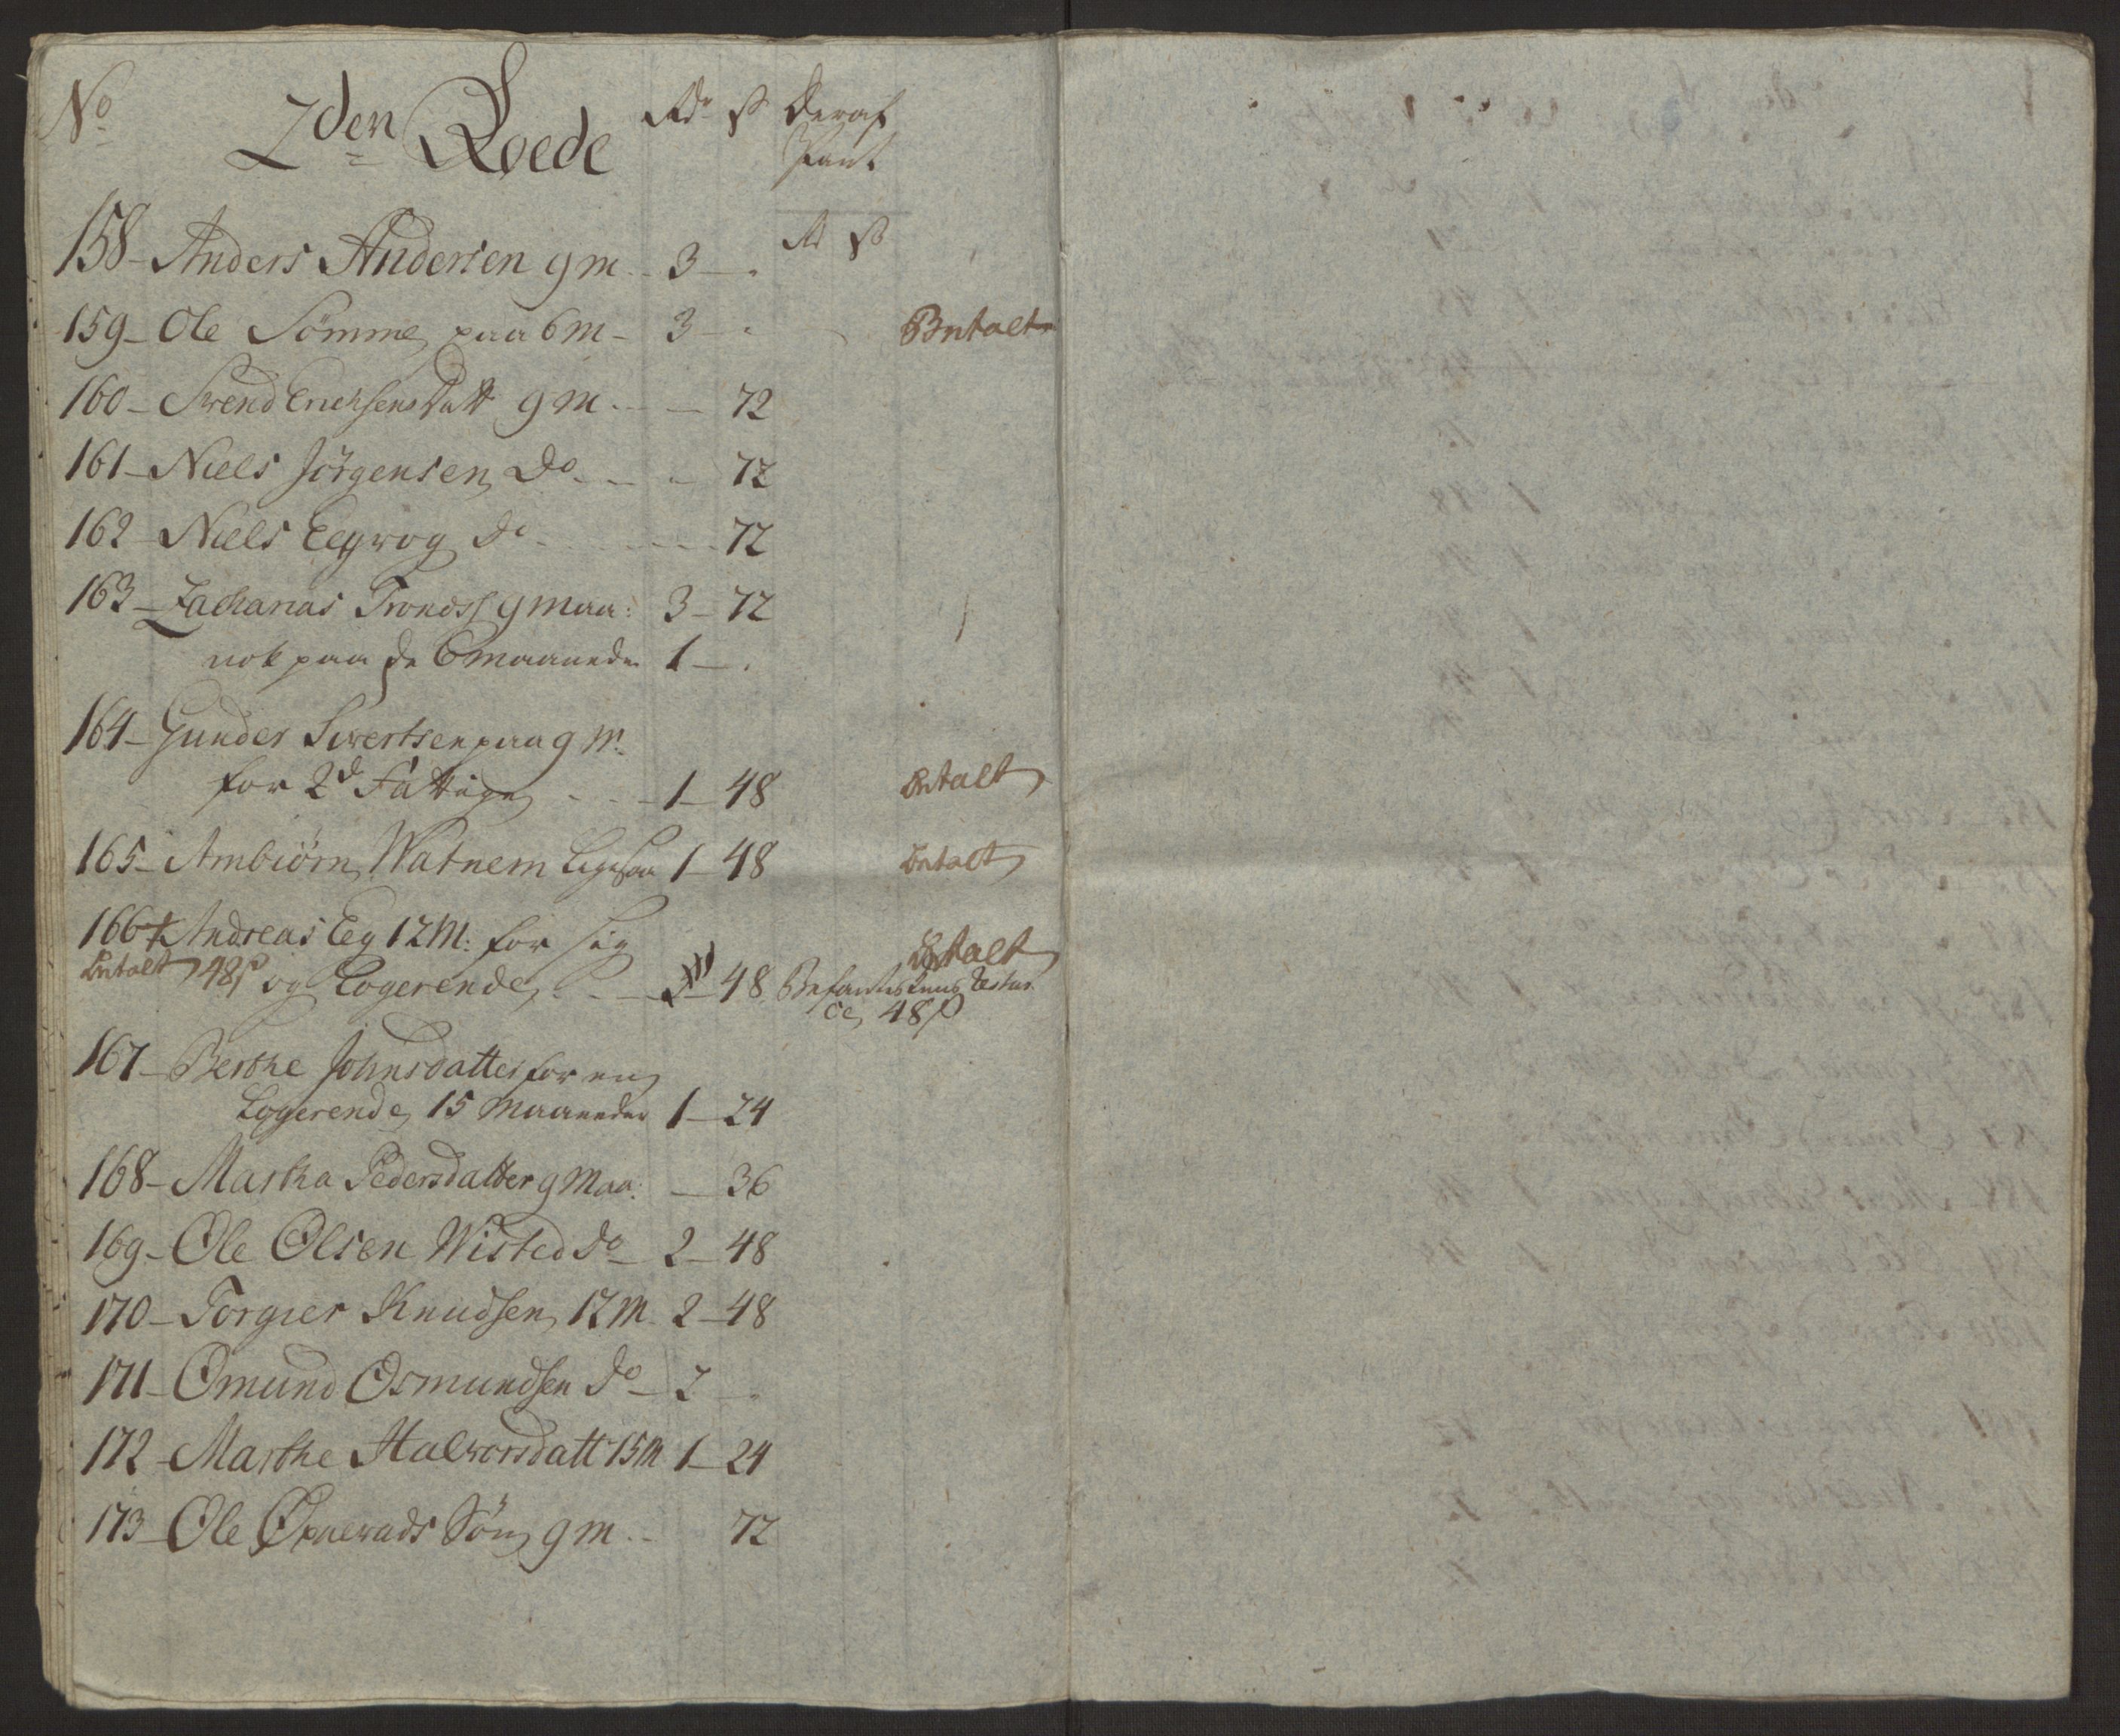 No 2den Roede Rdr ß Deraf
Pant
Rd ß
158 - Anders Andersen 9 m - 3 - .
159 - Ole Sömme paa 6 M - 3 - . Betalt
160 - Svend Erichsens Datt 9 M - - 72
161 - Niels Jörgensen Do - - - 72
162 - Niels Eegrog do - - - 72
163 - Zacharias Trondss 9 Maa: 3 - 72
nok paa de 6 maaneder 1 - .
164 - Gunder Sivertsen paa 9 M:
for 2de Fattige - - - 1 - 48 betalt
165 - Ambiörn Watnem Ligesaa 1 - 48 betalt
166 + Andreas Eeg 12 M: for sig betalt
betalt 48ß og Logerende - - 48
ce, 48 ß
167 - Berthe Johnsdatter for en
Logerende 15 Maaneder 1 - 24
168 - Martha Pedersdatter 9 Maa: - 36
169 - Ole Olsen Wisted do - 2 - 48
170 - Torgier Knudsen 12 M 2 - 48
171 - Omund Osmundsen do - 2 - .
172 - Marthe Halvorsdatt 15 M 1 - 24
173 - Ole Sön 9 m - - 72